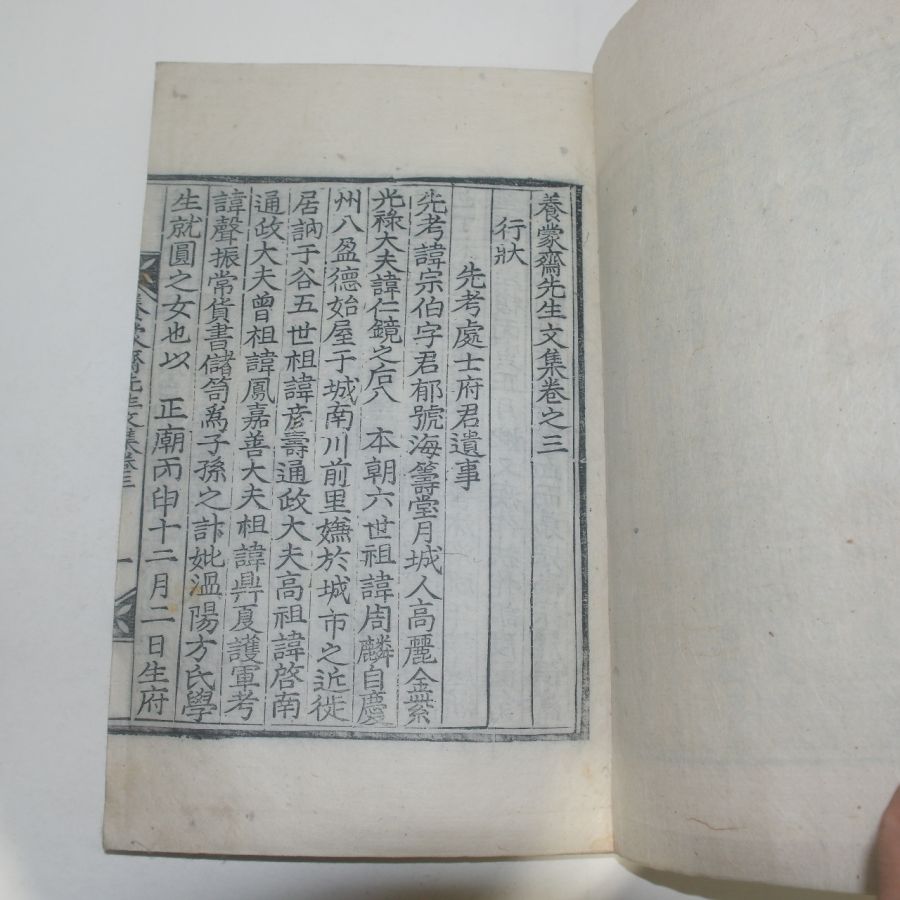 養蒙齋先生文集卷之三
行狀
先考處士府君遺事
先考諱宗伯字君郁號海籌堂月城人高麗金紫
光祿大夫諱仁鏡之后八 本朝六世祖諱周麟自慶
州八盈德始屋于城南川前里嫌於城市之近徙
居訥于谷五世祖諱彦壽通政大夫高祖諱啓南
通政大夫曾祖諱鳳嘉善大夫祖諱鼎夏護軍考
諱聲振常貨書儲笥爲子孫之計妣溫陽方氏學
生就圓之女也以 正廟丙申十二月二日生府
養蒙齋先生文集卷三
一